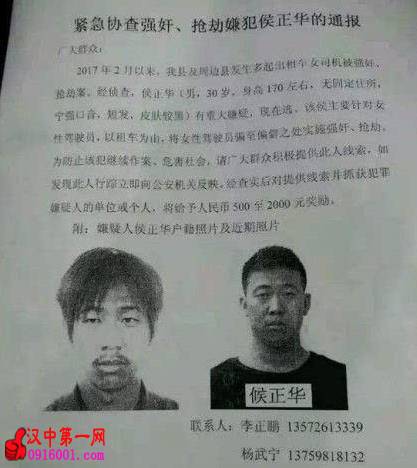 紧急协查强奸、抢劫嫌犯侯正华的通报
广大群众：
2017年2月以来，我县及周边县发生多起出租车女司机被强奸、
抢劫案。经侦查，侯正华（男，30岁，身高170左右，无固定住所，
宁强口音，短发，皮肤较黑）有重大嫌疑，现在逃。该侯主要针对女
性驾驶员，以租车为由，将女性驾驶员骗至偏僻之处实施强奸、抢劫。
为防止该犯继续作案、危害社会，请广大群众积极提供此人线索，如
发现此人行踪立即向公安机关反映。经查实后对提供线索并抓获犯罪
嫌疑人的单位或个人，将给予人民币500至2000元奖励。
附：嫌疑人侯正华户籍照片及近期照片
侯正华
联系人：李正鹏 13572613339
杨武宁 13759818132
汉中第一网
0916001.com